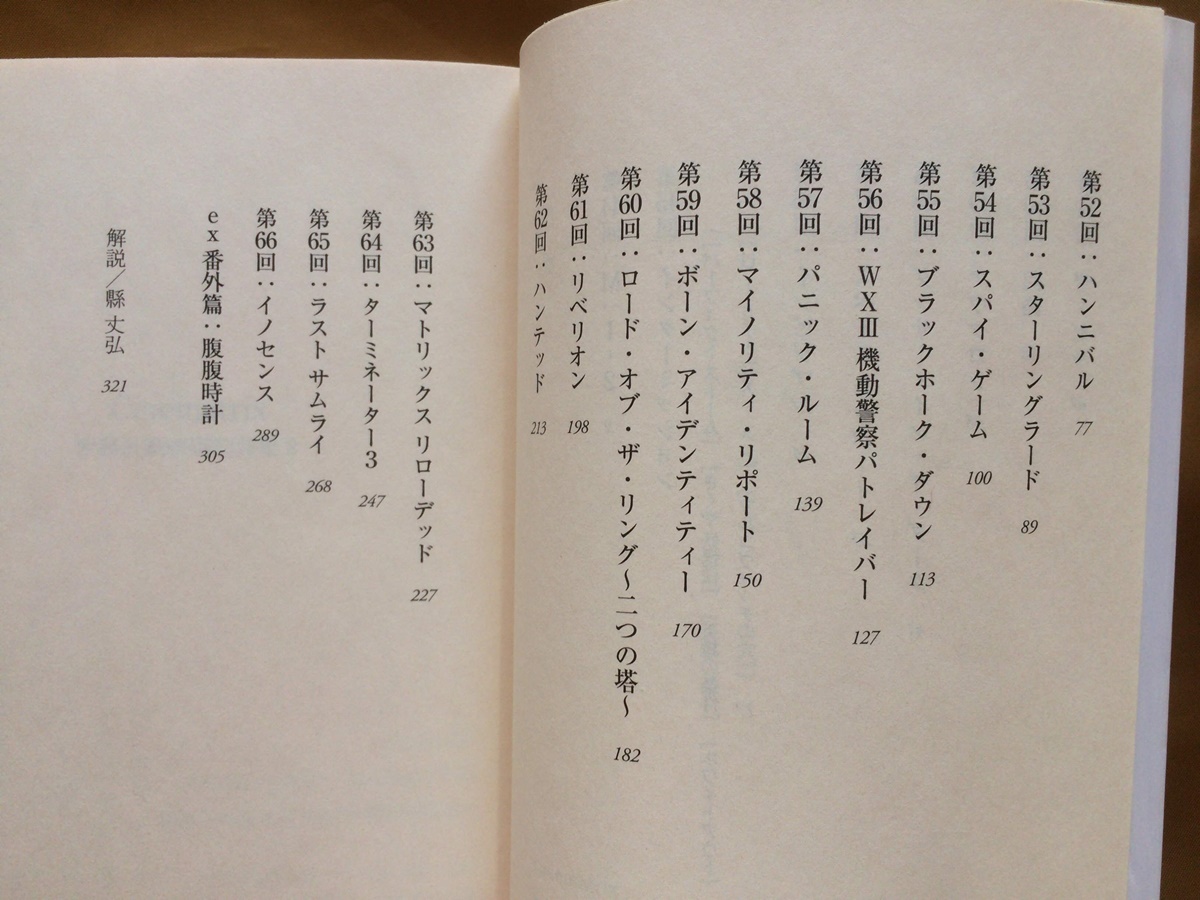 第52回：ハンニバル 77
第53回：スターリングラード 89
第54回：スパイ・ゲーム 100
第55回：ブラックホーク・ダウン 113
第56回：WXⅢ 機動警察パトレイバー 127
第57回：パニック・ルーム 139
第58回：マイノリティ・リポート 150
第59回：ボーン・アイデンティティー 170
第60回：ロード・オブ・ザ・リング〜二つの塔〜 182
第61回：リベリオン 198
第62回：ハンテッド 213
第63回：マトリックス リローデッド 227
第64回：ターミネーター3 247
第65回：ラスト サムライ 268
第66回：イノセンス 289
ex番外篇：腹腹時計 305
解説／縣 丈弘 321